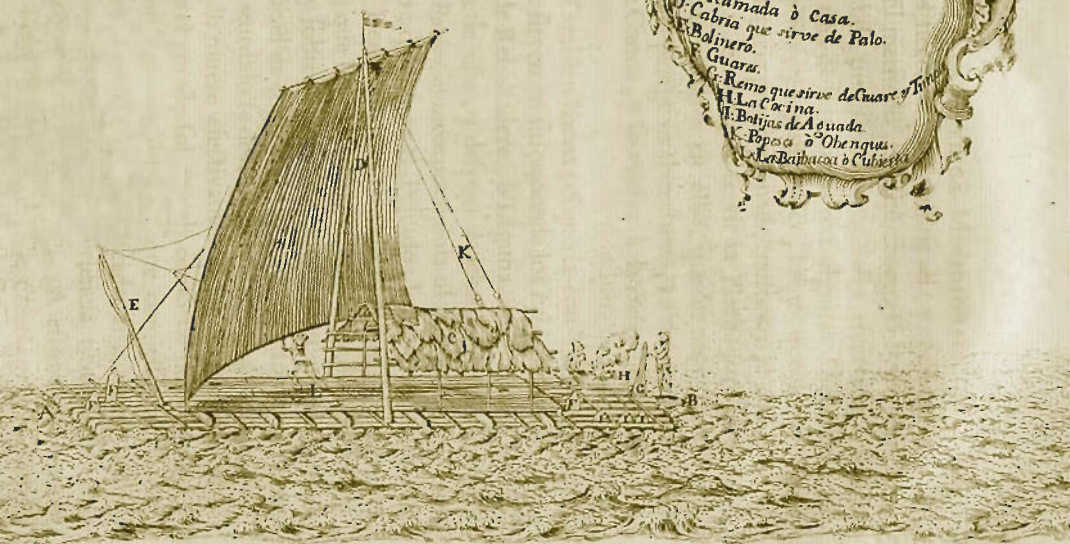 Ramada ò Casa.
Cabria que sirve de Palo.
Bolinero.
F. Guares.
G: Remo que sirve de Guare y Timon
H: La Cocina.
I: Botijas de Aguada
K: Popesa ò Obenques.
L: La Barbacoa ò Cubierta
D
K
E
C
I
L
H
G
B
F
A